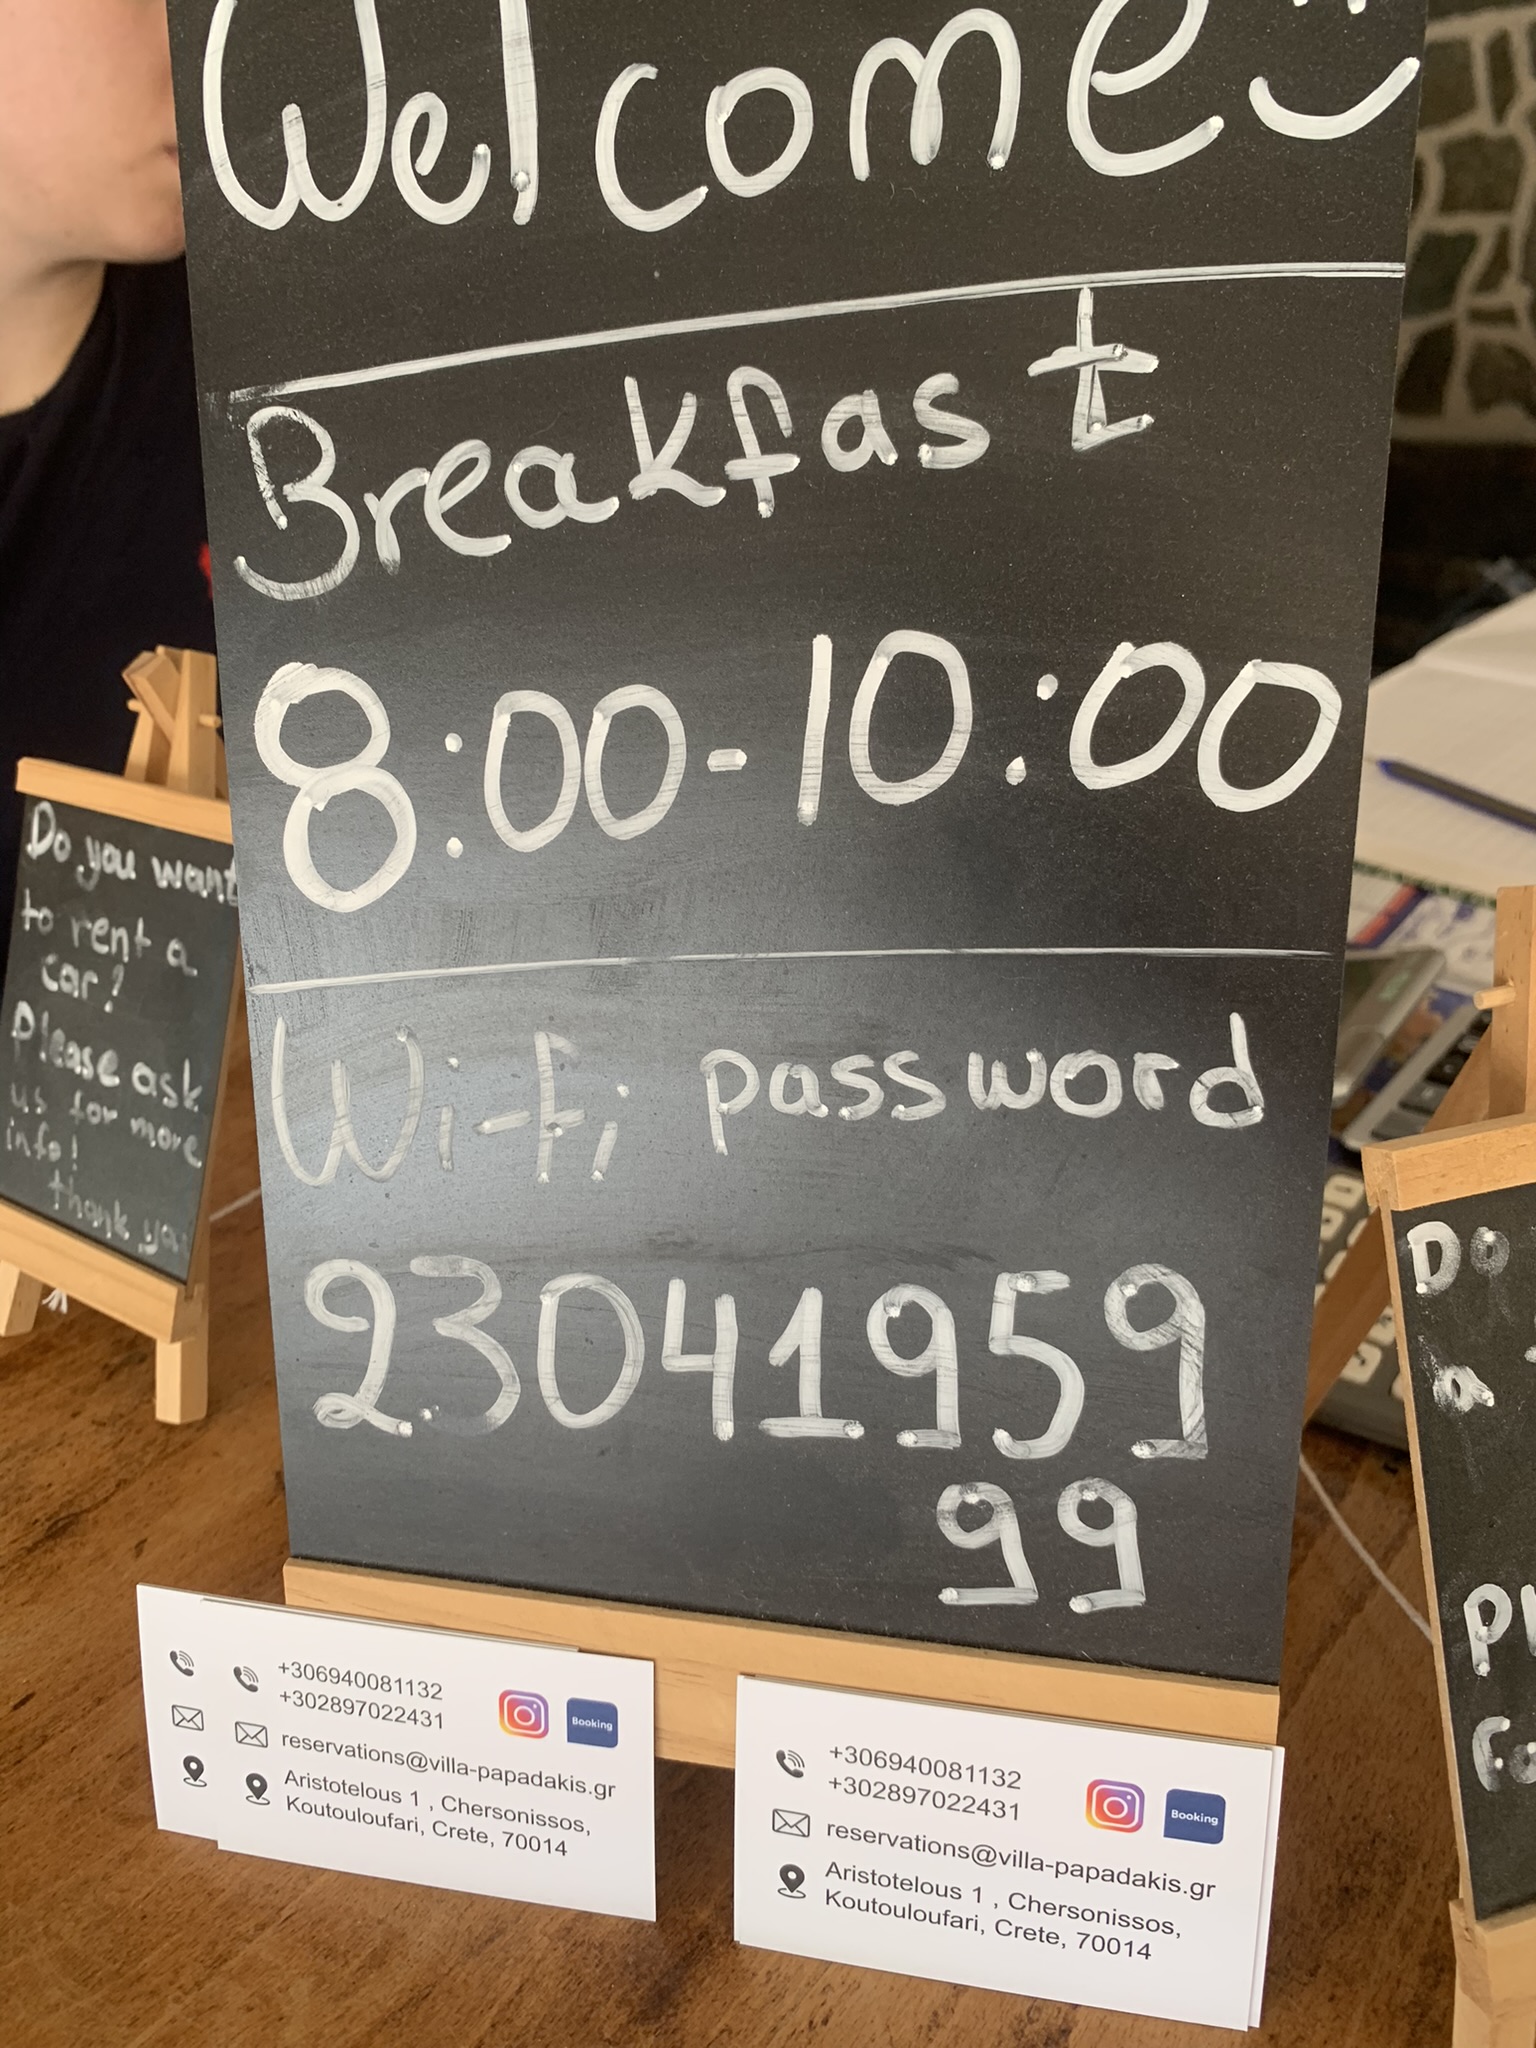 Welcome
Breakfast
8:00-10:00
Wi-fi password
23041959
99
Do you want
to rent a
car?
Please ask
us for more
info!
thank you
Do
a
Pl
+306940081132
+302897022431
Booking
reservations@villa-papadakis.gr
Aristotelous 1 , Chersonissos,
Koutouloufari, Crete, 70014
+306940081132
+302897022431
Booking
reservations@villa-papadakis.gr
Aristotelous 1 , Chersonissos,
Koutouloufari, Crete, 70014